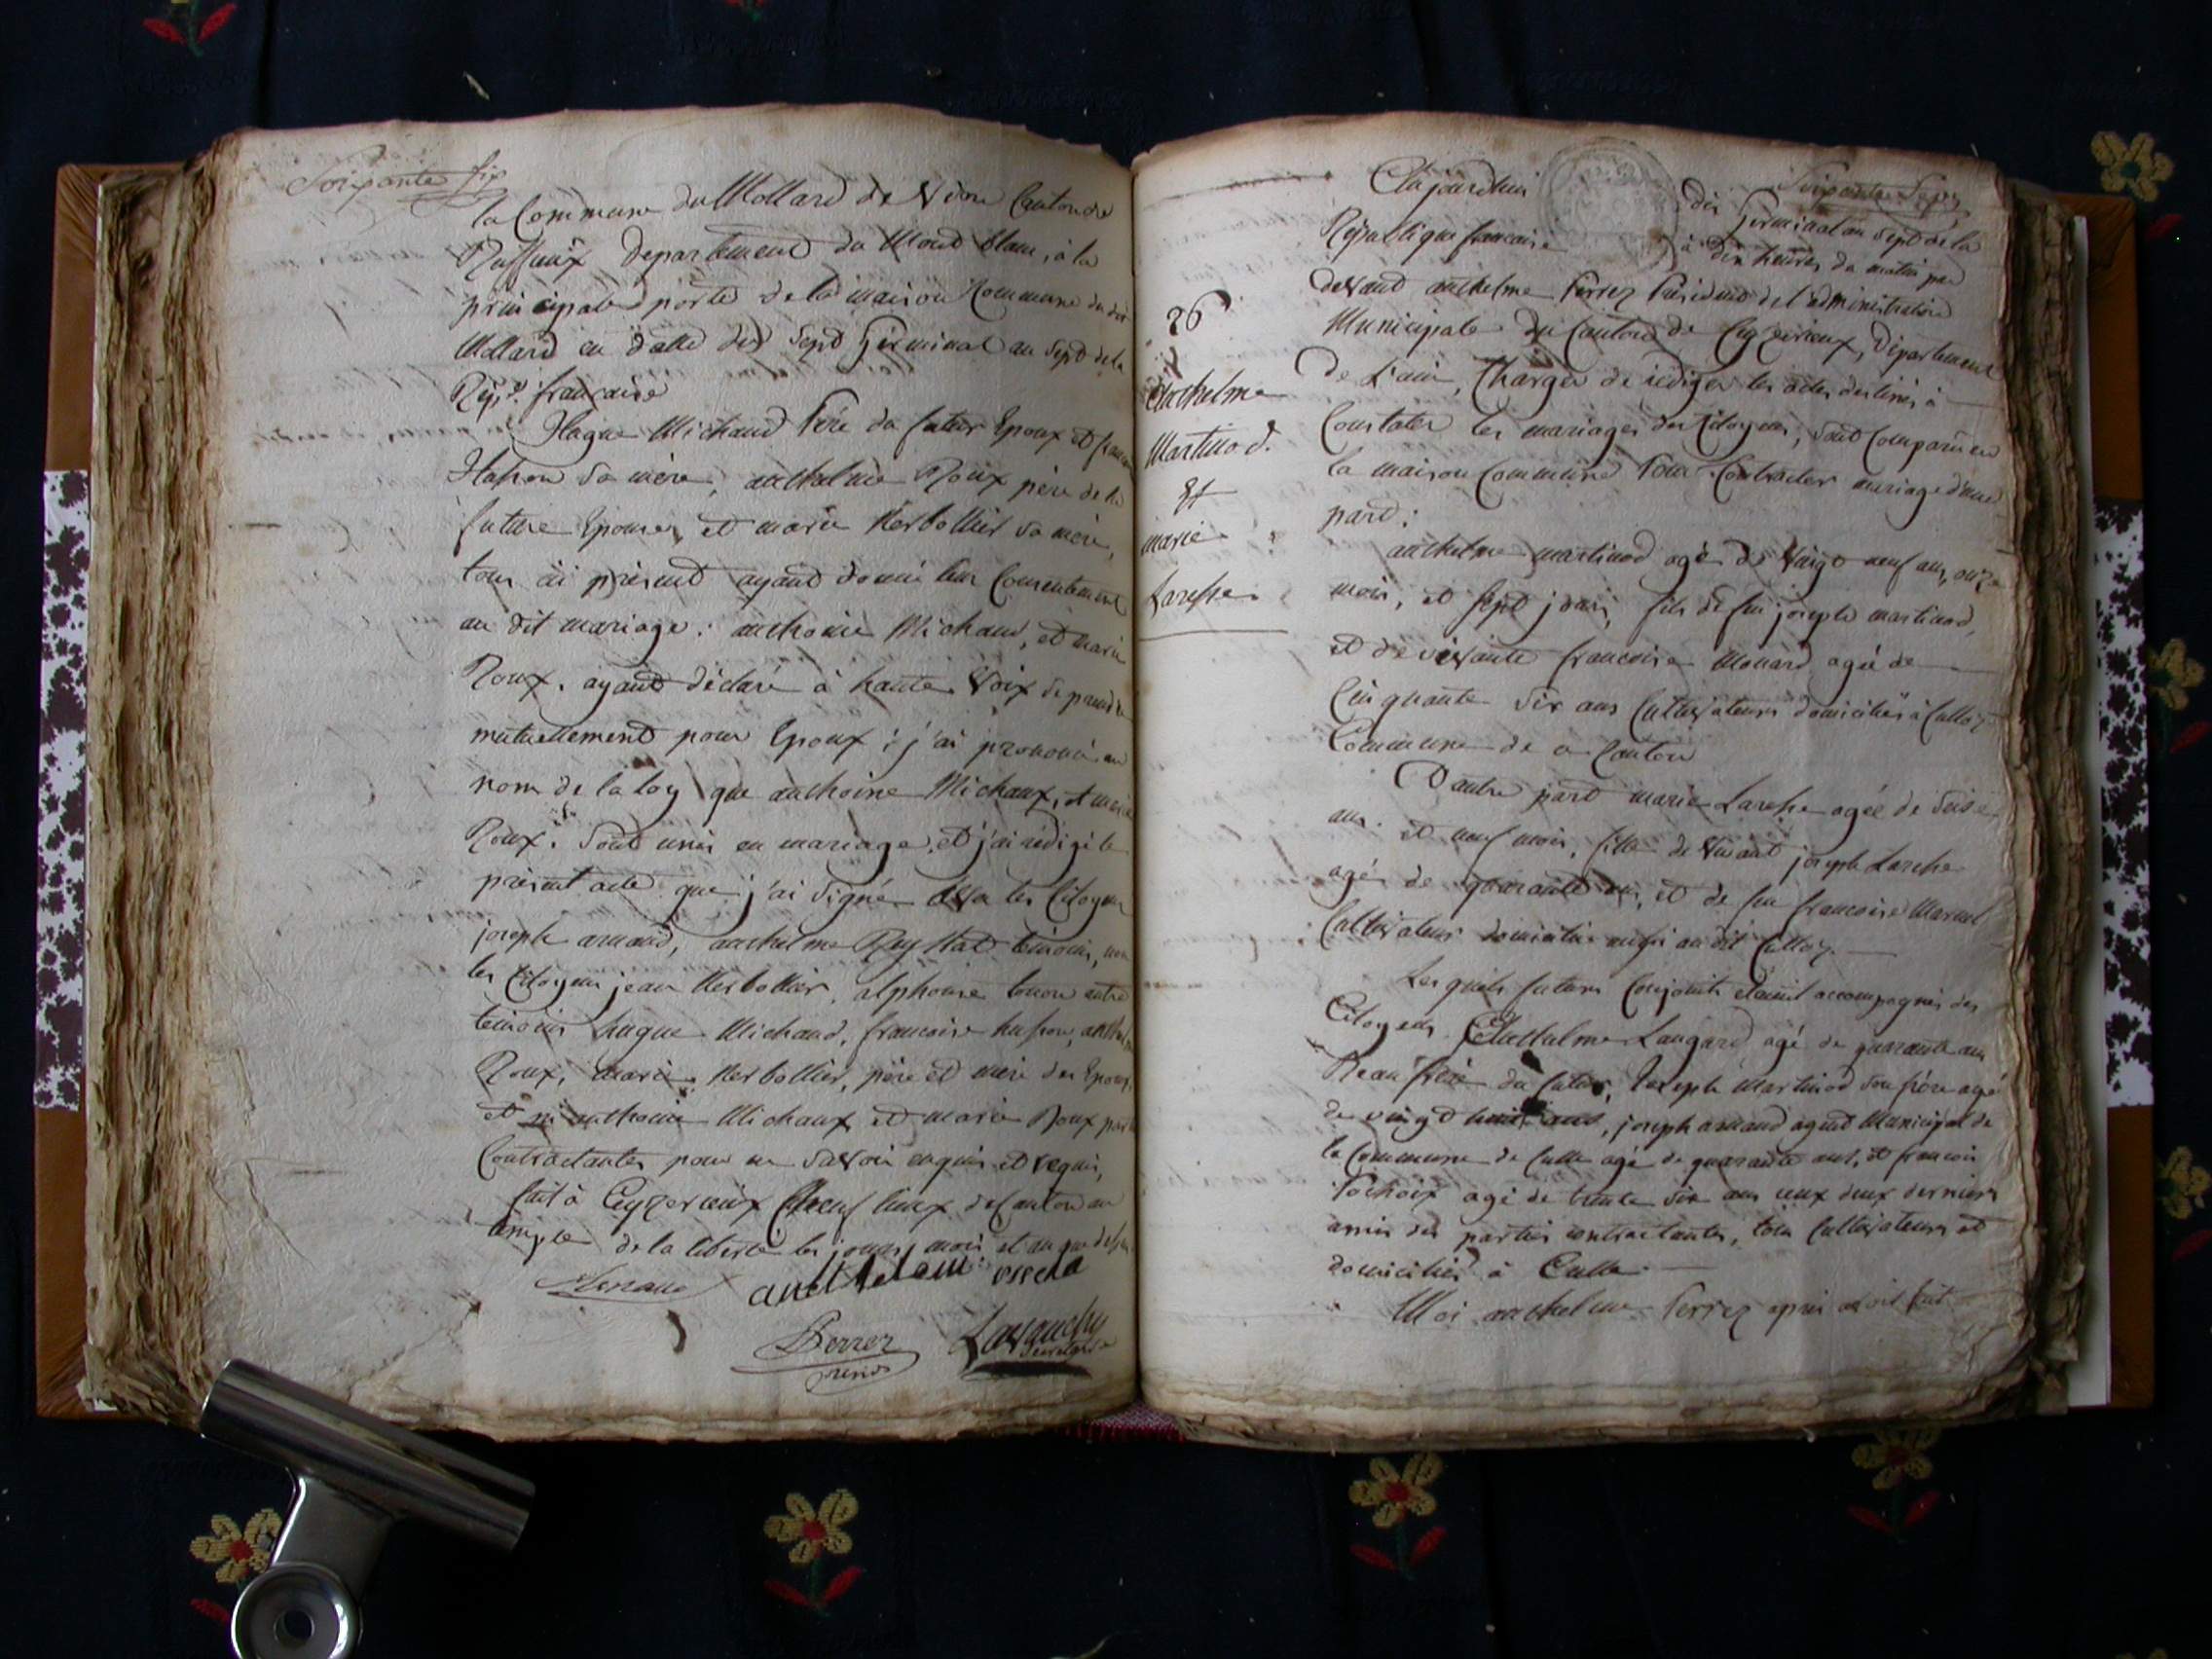 Soixante six
la Commune du Mollard de Vion Canton de
Ruffieux Departement du Mont blanc, à la
principale porte de la maison Commune du dit
Mollard en datte du sept Germinal an sept de la
Rep.e francaise
Hugue Michaud Père du futur Epoux et
sa mère, anthelme Roux père de la
future Epouse, et marie Berbollier sa mère,
tous ici présent ayant donné leur Consentement
au dit mariage: anthoine Michaud, et marie
Roux. ayant déclaré à haute Voix se prendre
mutuellement pour Epoux; j'ai prononcé au
nom de la loy que anthoine Michaux, et marie
Roux. sont unis en mariage, et j'ai rédigé le
présent acte que j'ai signé avec les Citoyens
joseph arnaud, anthelme Reystat temoins, non
les Citoyens jean Berbollier, alphonse autre
temoins hugue Michaud, francoise husson, anthelme
Roux, marie Berbollier, père et mère des Epoux,
et ni anthoine Michaux et marie Roux parties
Contractantes pour ne savoir enquis et requis,
fait à Ceyzerieux Cheuf lieux de Canton au
temple de la liberté les jours, mois et an que dessus
Perrez
presid
Soixante Sept
Aujourdhui dix Germinal an Sept de la
République francaise à dix heures du matin par
devant anthelme Perrez Président de l'administration
Municipale du Canton de Ceyzerieux, Département
De L'ain, Chargée de rédiger les actes destinés à
Constater les mariages des Citoyens, sont Comparu en
la maison Commune Pour Contracter mariage d'une
part:
26
Anthelme
Martinod.
Et
marie
Larehe
anthelme martinod agé de Vingt neuf ans, onze
mois, et sept jours, fils de feu joseph martinod,
et de vivante francoise Monard agée de
Cinquante six ans Cultivateurs domiciliés à Culloz
Commune de ce Canton
D'autre part marie Larehe agée de seise
ans. et neuf mois, fille de Vivant joseph Larehe
agé de quarante ans, et de feu francoise
Cultivateur domicilié aussi au dit Culloz.
Les quels futurs Conjoints étaient accompagnés des
Citoyens Anthelme Laugard agé de quarante ans
Beau frère du futur, Joseph Martinod son frère agé
de vingt huit ans, joseph arnaud agent Municipal de
la Commune de Culle agé de quarante ans, et francois
Pochoix agé de trente six ans ceux deux derniers
amis des parties contractantes, tous Cultivateurs et
domiciliés à Culle.
Moi anthelme Perrez après avoir fait